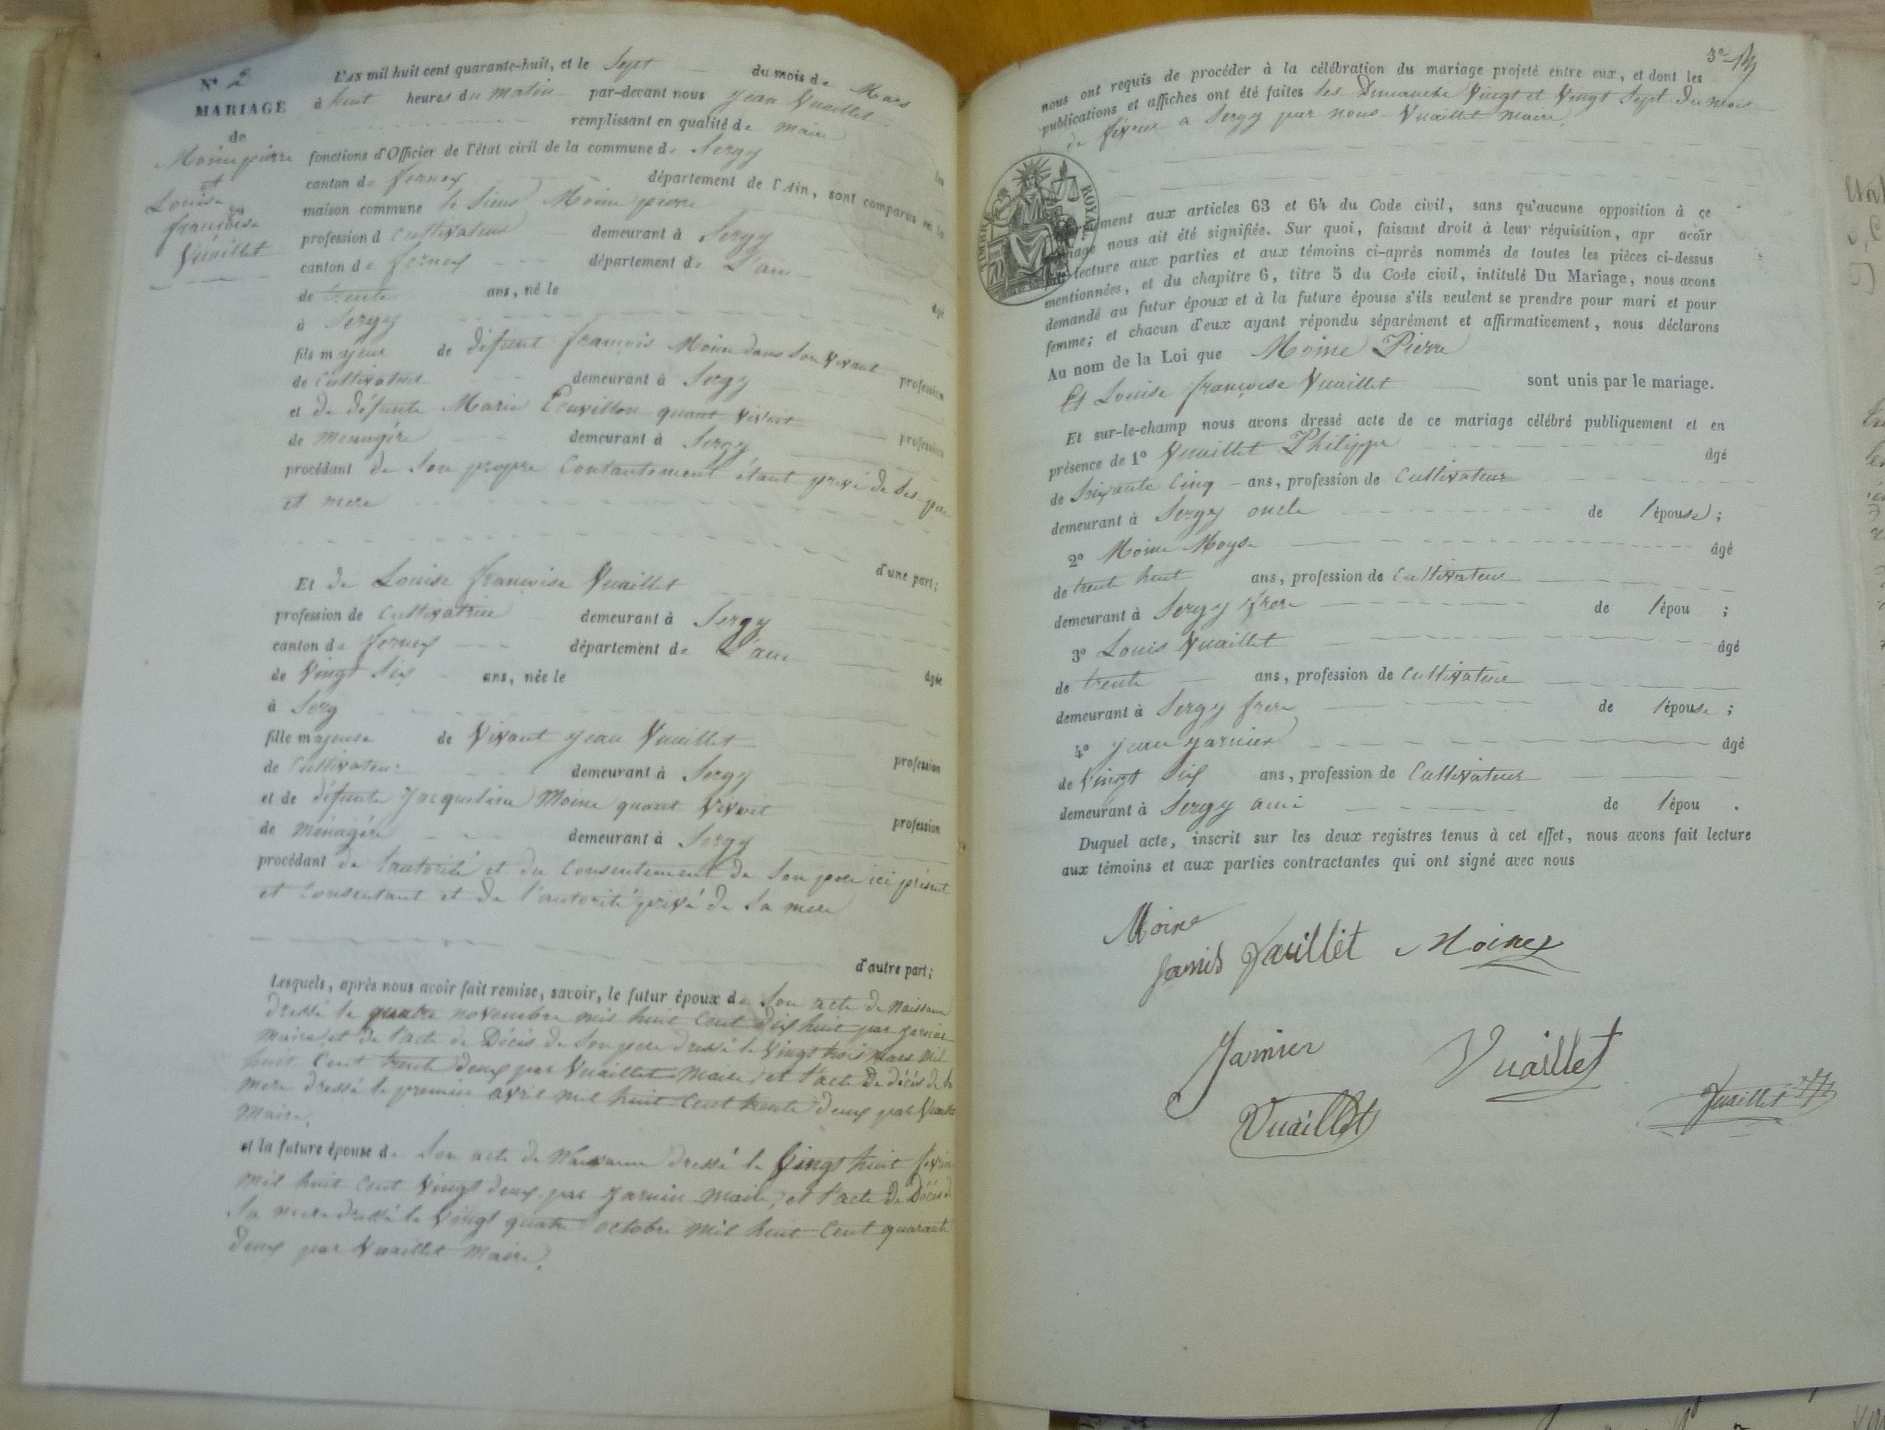 N° 2
MARIAGE
de
Moine pierre
et
Louise
françoise
Vuaillet
L'AN mil huit cent quarante-huit, et le Sept du mois de Mars
à huit heures du matin par-devant nous jean Vuaillet
remplissant en qualité de maire les
fonctions d'Officier de l'état civil de la commune de Sergy
canton de ferney département de l'Ain, sont comparus en la
maison commune le Sieur Moine pierre
profession d Cultivateur demeurant à Sergy
canton de ferney département de L'ain
âgé
de trente ans, né le
à Sergy
fils majeur de défunt françois Moine dans son vivant profession
de Cultivateur demeurant à Sergy
et de défunte Marie quant vivoit profession
de menagére demeurant à Sergy
procédant de Son propre Contantement étant privé de Ses pere
et mere
d'une part;
Et de Louise françoise Vuaillet
profession de Cultivatrice demeurant à Sergy
canton de ferney département de L'ain
âgée
de Vingt Six ans, née le
à Serg
fille majeure de Vivant jean Vuaillet profession
de Cultivateur demeurant à Sergy
et de défunte jacqueline Moine quant Vivoit profession
de ménagére demeurant à Sergy
procédant de l'autorité et du Consentement de Son pere ici présent
et Consentant et de l'autorité privé de Sa mere
d'autre part;
Lesquels, après nous avoir fait remise, savoir, le futur époux de Son acte de Naissance
dressé le quatre novembre mil huit Cent dix huit par jarnier
maire et de l'acte de Décés de Son pere dressé le Vingt trois Mars Mil
huit Cent trente deux par Vuaillet Maire, et l'acte de décés de Sa
mere dressé le premier avril mil huit Cent trente deux par Vuaillet
Maire,
et la future épouse de Son acte de Naissance dressé le Vingt huit fevrier
mil huit Cent Vingt deux par jarnier maire, et l'acte de Décés de
Sa mere dressé le Vingt quatre octobre mil huit Cent quarante
deux par Vuaillet Maire,
nous ont requis de procéder à la célébration du mariage projeté entre eux, et dont les
publications et affiches ont été faites les Dimanche Vingt et Vingt Sept du mois
de févrer a Sergy par nous Vuaillet maire,
TIMBRE ROYAL
ment aux articles 63 et 64 du Code civil, sans qu'aucune opposition à ce
iage nous ait été signifiée. Sur quoi, faisant droit à leur réquisition, apr avoir
lecture aux parties et aux témoins ci-après nommés de toutes les pièces ci-dessus
mentionnées, et du chapitre 6, titre 5 du Code civil, intitulé Du Mariage, nous avons
demandé au futur époux et à la future épouse s'ils veulent se prendre pour mari et pour
femme; et chacun d'eux ayant répondu séparément et affirmativement, nous déclarons
Au nom de la Loi que Moine Pierre
Et Louise françoise Vuaillet sont unis par le mariage.
Et sur-le-champ nous avons dressé acte de ce mariage célébré publiquement et en
présence de 1° Vuaillet Philippe âgé
de Soixante Cinq ans, profession de Cultivateur
demeurant à Sergy oncle de l'épouse;
2° Moine Moyse âgé
de trent huit ans, profession de Cultivateur
demeurant à Sergy frere de l'épou ;
3° Louis Vuaillet âgé
de trente ans, profession de Cultivateur
demeurant à Sergy frere de l'épouse;
4° jean jarnier âgé
de Vingt Six ans, profession de Cultivateur
demeurant à Sergy ami de l'épou .
Duquel acte, inscrit sur les deux registres tenus à cet effet, nous avons fait lecture
aux témoins et aux parties contractantes qui ont signé avec nous
Moine
Vuaillet Moine
Jarnier Vuaillet
Vuaillet Vuaillet